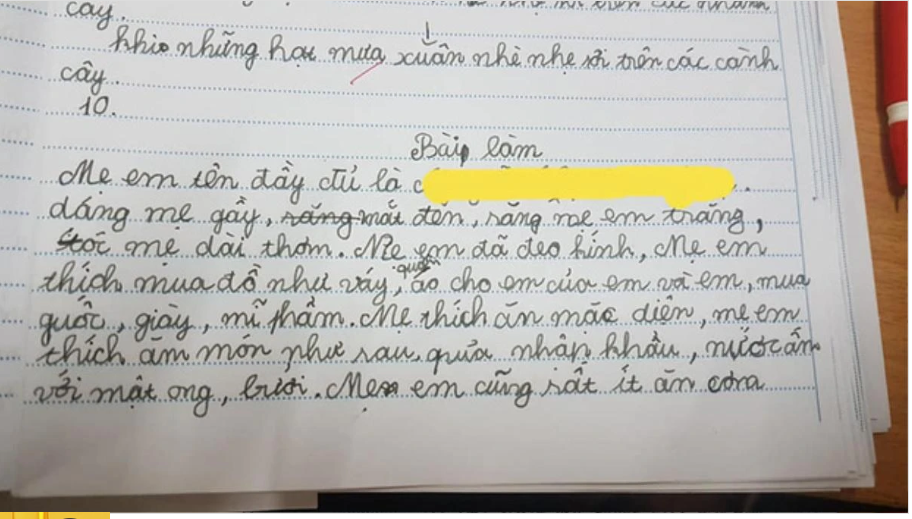 cây.
khi những hạt mưa xuân nhè nhẹ rơi trên các cành
cây.
10.
Bài làm
Mẹ em tên đầy đủ là
dáng mẹ gầy, răng mắt đến, răng mẹ em trắng,
tóc mẹ dài thơm. Mẹ em đã đeo kính, Mẹ em
thích mua đồ như váy, quần áo cho em của em và em, mua
guốc, giày, mĩ phẩm. Mẹ thích ăn mặc diện, mẹ em
thích ăm món như rau, quửa nhập khẩu, nước ấm
với mật ong, bưởi. Mẹ em cũng rất ít ăn cơm